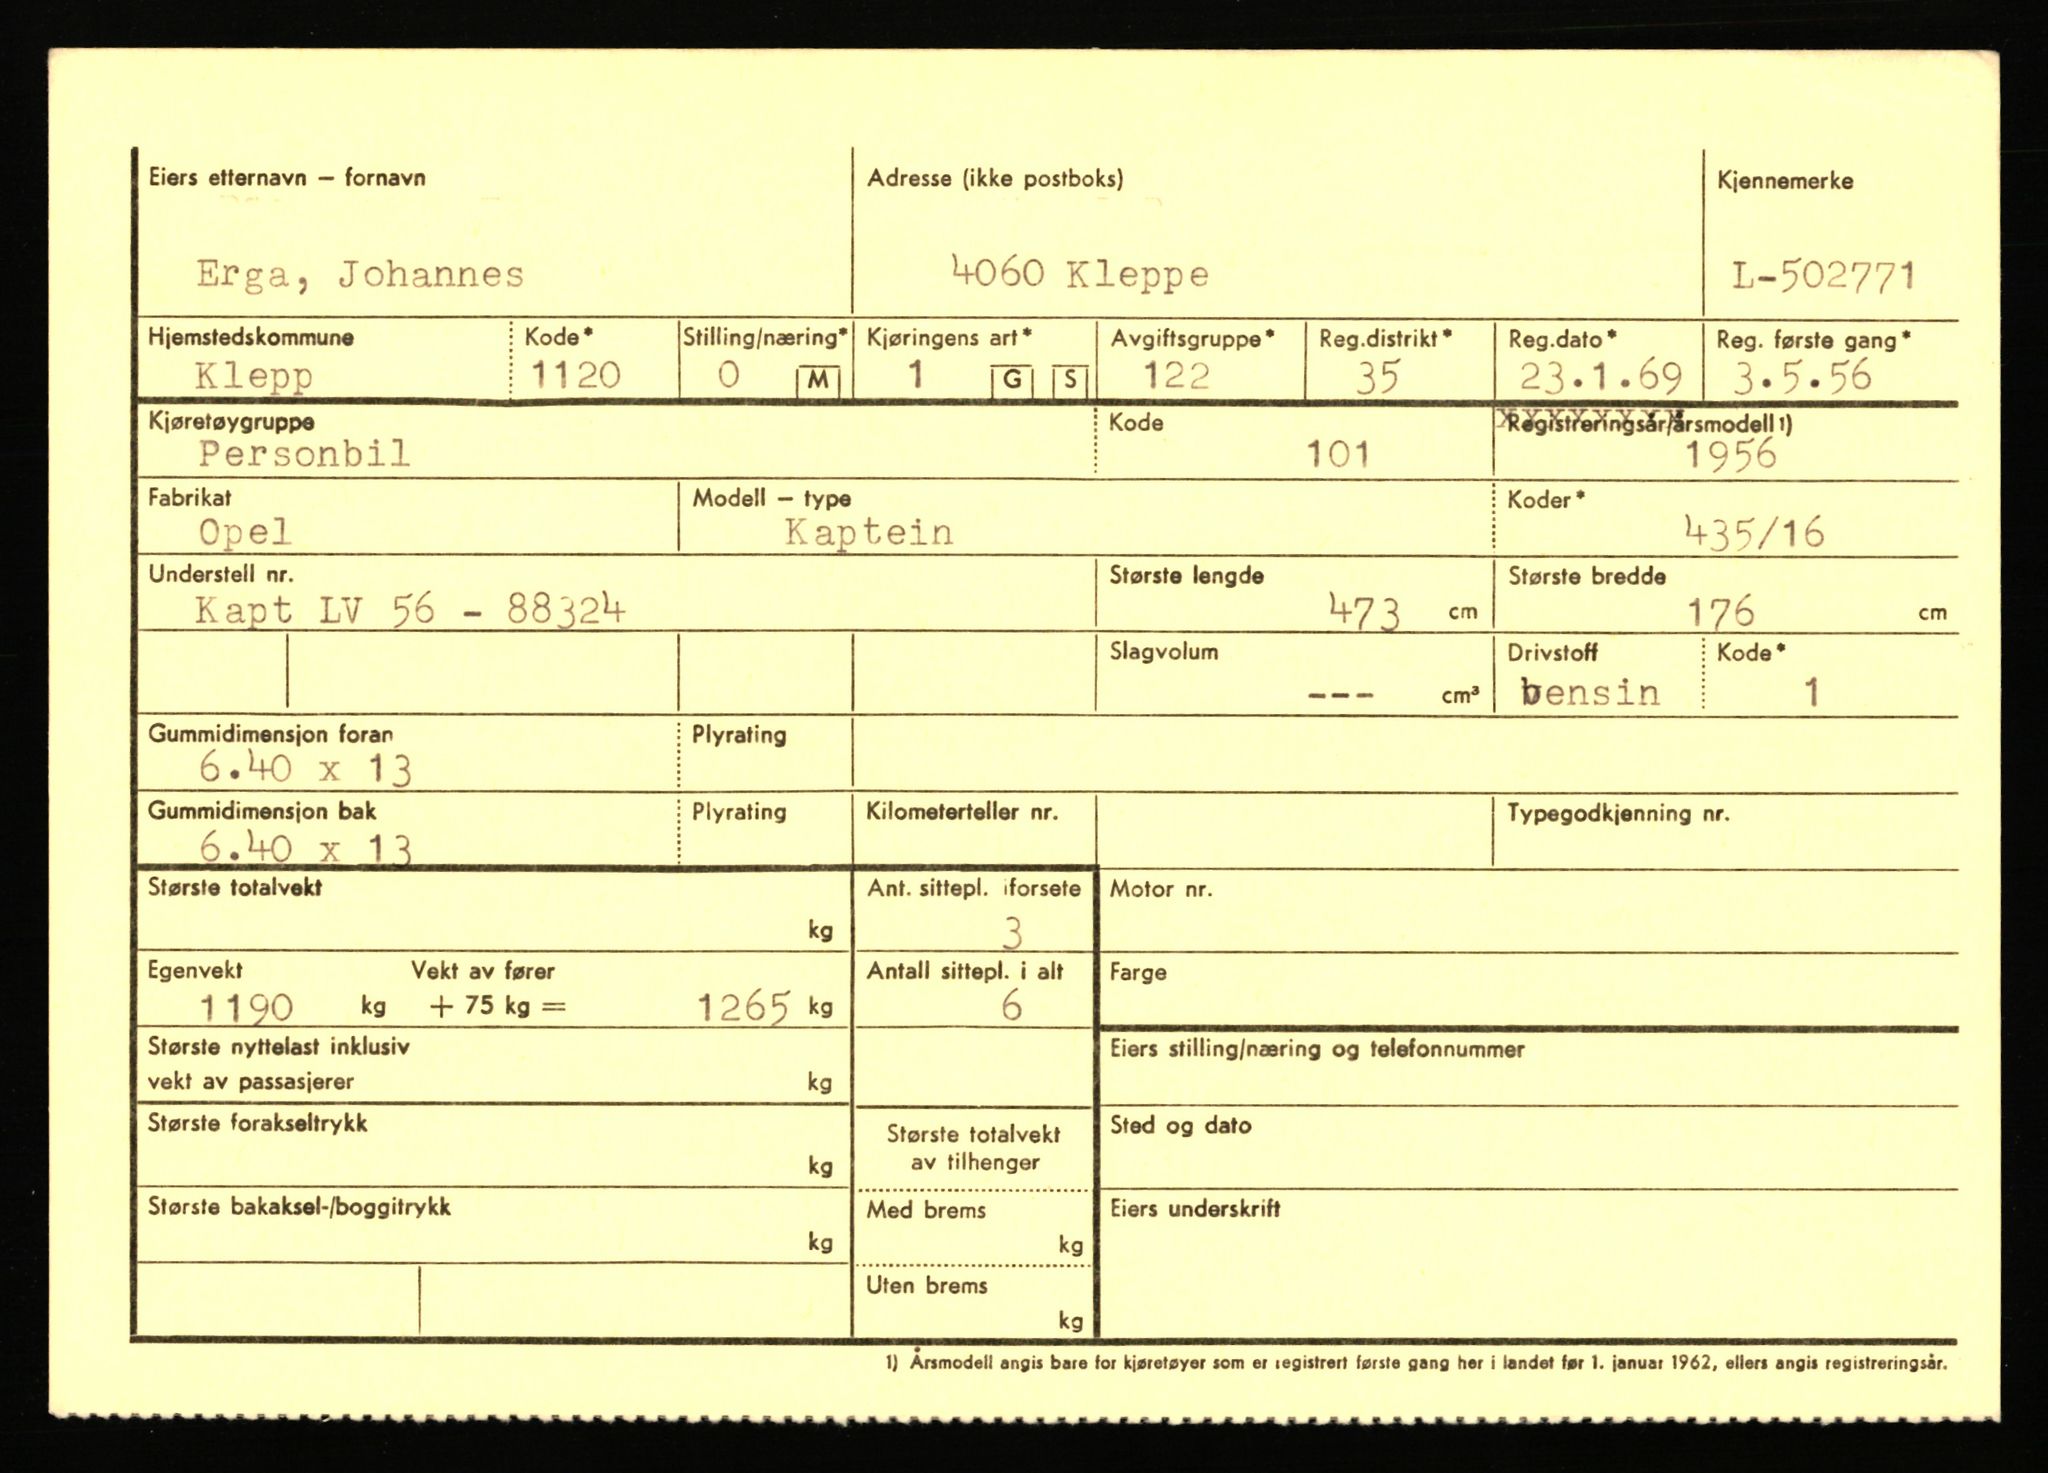 Eiers etternavn – fornavn Adresse (ikke postboks) Kjennemerke
Erga, Johannes 4060 Kleppe L-502771
Hjemstedskommune Kode* Stilling/næring* Kjøringens art* Avgiftsgruppe* Reg.distrikt* Reg.dato* Reg. første gang*
Klepp 1120 0 M 1 G S 122 35 23.1.69 3.5.56
Kjøretøygruppe Kode Registreringsår/årsmodell 1)
Personbil 101 1956
Fabrikat Modell – type Koder*
Opel Kaptein 435/16
Understell nr. Største lengde Største bredde
Kapt LV 56 - 88324 473 cm 176 cm
Slagvolum Drivstoff Kode*
--- cm³ bensin 1
Gummidimensjon foran Plyrating
6.40 x 13
Gummidimensjon bak Plyrating Kilometerteller nr. Typegodkjenning nr.
6.40 x 13
Største totalvekt Ant. sittepl. i forsete Motor nr.
kg 3
Egenvekt Vekt av fører Antall sittepl. i alt Farge
1190 kg + 75 kg = 1265 kg 6
Største nyttelast inklusiv Eiers stilling/næring og telefonnummer
vekt av passasjerer kg
Største forakseltrykk Sted og dato
Største totalvekt
av tilhenger
kg
Største bakaksel-/boggitrykk Med brems Eiers underskrift
kg kg
Uten brems
kg
1) Årsmodell angis bare for kjøretøyer som er registrert første gang her i landet før 1. januar 1962, ellers angis registreringsår.